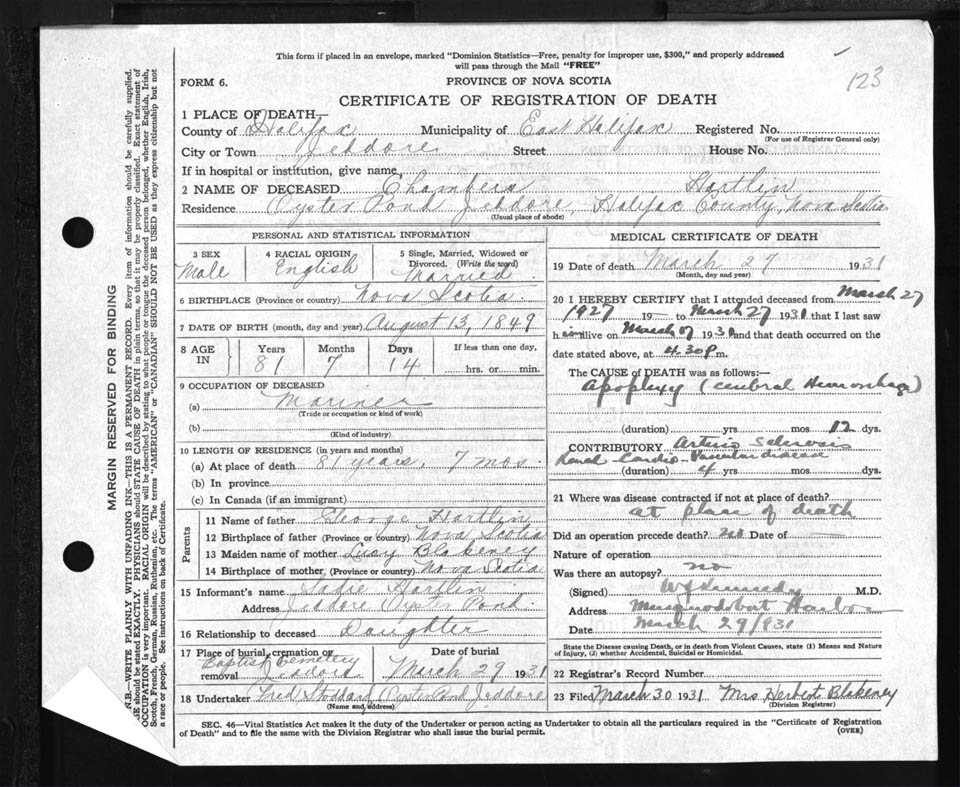 This form if placed in an envelope, marked "Dominion Statistics—Free, penalty for improper use, $300," and properly addressed
will pass through the Mail "FREE"
FORM 6.
PROVINCE OF NOVA SCOTIA
123
CERTIFICATE OF REGISTRATION OF DEATH
1 PLACE OF DEATH—
County of Halifax Municipality of East Halifax Registered No.
(For use of Registrar General only)
City or Town Jeddore Street House No.
If in hospital or institution, give name
2 NAME OF DECEASED Chambers Hartlin
Residence Oyster Pond Jeddore, Halifax County, Nova Scotia
(Usual place of abode)
PERSONAL AND STATISTICAL INFORMATION
3 SEX 4 RACIAL ORIGIN 5 Single, Married, Widowed or
Divorced. (Write the word)
Male English Married
6 BIRTHPLACE (Province or country) Nova Scotia
7 DATE OF BIRTH (month, day and year) August 13, 1849
8 AGE IN Years Months Days If less than one day,
81 7 14 hrs. or min.
9 OCCUPATION OF DECEASED
(a) Mariner
(Trade or occupation or kind of work)
(b)
(Kind of industry)
10 LENGTH OF RESIDENCE (in years and months)
(a) At place of death 81 years, 7 mos.
(b) In province
(c) In Canada (if an immigrant)
Parents
11 Name of father George Hartlin
12 Birthplace of father (Province or country) Nova Scotia
13 Maiden name of mother Lucy Blakeney
14 Birthplace of mother (Province or country) Nova Scotia
15 Informant's name Sadie Hartlin
Address Jeddore Oyster Pond.
16 Relationship to deceased Daughter
17 Place of burial, cremation or removal Date of burial
Baptist Cemetery Jeddore March 29 1931
18 Undertaker Fred Stoddard Oyster Pond Jeddore
(Name and address)
MEDICAL CERTIFICATE OF DEATH
19 Date of death March 27 1931
(Month, day and year)
20 I HEREBY CERTIFY that I attended deceased from March 27
1927 19 to March 27 1931 that I last saw
h im alive on March 1931 and that death occurred on
date stated above, at 4.30 p m.
The CAUSE of DEATH was as follows:—
Apoplexy (cerebral Hemorrhage)
(duration) yrs mos 12 dys.
CONTRIBUTORY Arterio Sclerosis
Renal Cardio-Vascular disease
(duration) 4 yrs mos dys.
21 Where was disease contracted if not at place of death?
at place of death
Did an operation precede death? Date of
Nature of operation
Was there an autopsy? no
(Signed) Kennedy M.D.
Address Musquodoboit Harbor
Date March 29/931
State the Disease causing Death, or in death from Violent Causes, state (1) Means and Nature
of Injury, (2) whether Accidental, Suicidal or Homicidal.
22 Registrar's Record Number
23 Filed March 30 1931. Mrs Herbert Blakeney
(Division Registrar)
SEC. 46—Vital Statistics Act makes it the duty of the Undertaker or person acting as Undertaker to obtain all the particulars required in the "Certificate of Registration
of Death" and to file the same with the Division Registrar who shall issue the burial permit.
(OVER)
MARGIN RESERVED FOR BINDING
N.B.—WRITE PLAINLY WITH UNFADING INK—THIS IS A PERMANENT RECORD. Every item of information should be carefully supplied.
AGE should be stated EXACTLY. PHYSICIANS should STATE CAUSE OF DEATH in plain terms, so that it may be properly classified. Exact statement of
OCCUPATION is very important. RACIAL ORIGIN will be described by stating to what people or tongue the deceased person belonged, whether English, Irish,
Scotch, French, German, Russian, Ruthenian, etc. The terms "AMERICAN" or "CANADIAN" SHOULD NOT BE USED as they express citizenship but not
a race or people. See instructions on back of Certificate.